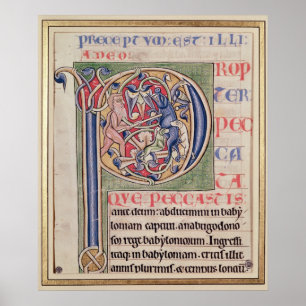 PRECEPTUM: EST: ILLI
A DEO:
P
ROP
TER
PEC
CA
TA
QUE PECCASTIS
ante deum: abducimini in baby
loniam captivi. anabugodono
sor rege babyloniorum. Ingressi
itaq; in babyloniam: eritis illic
annis plurimis & tempus longu